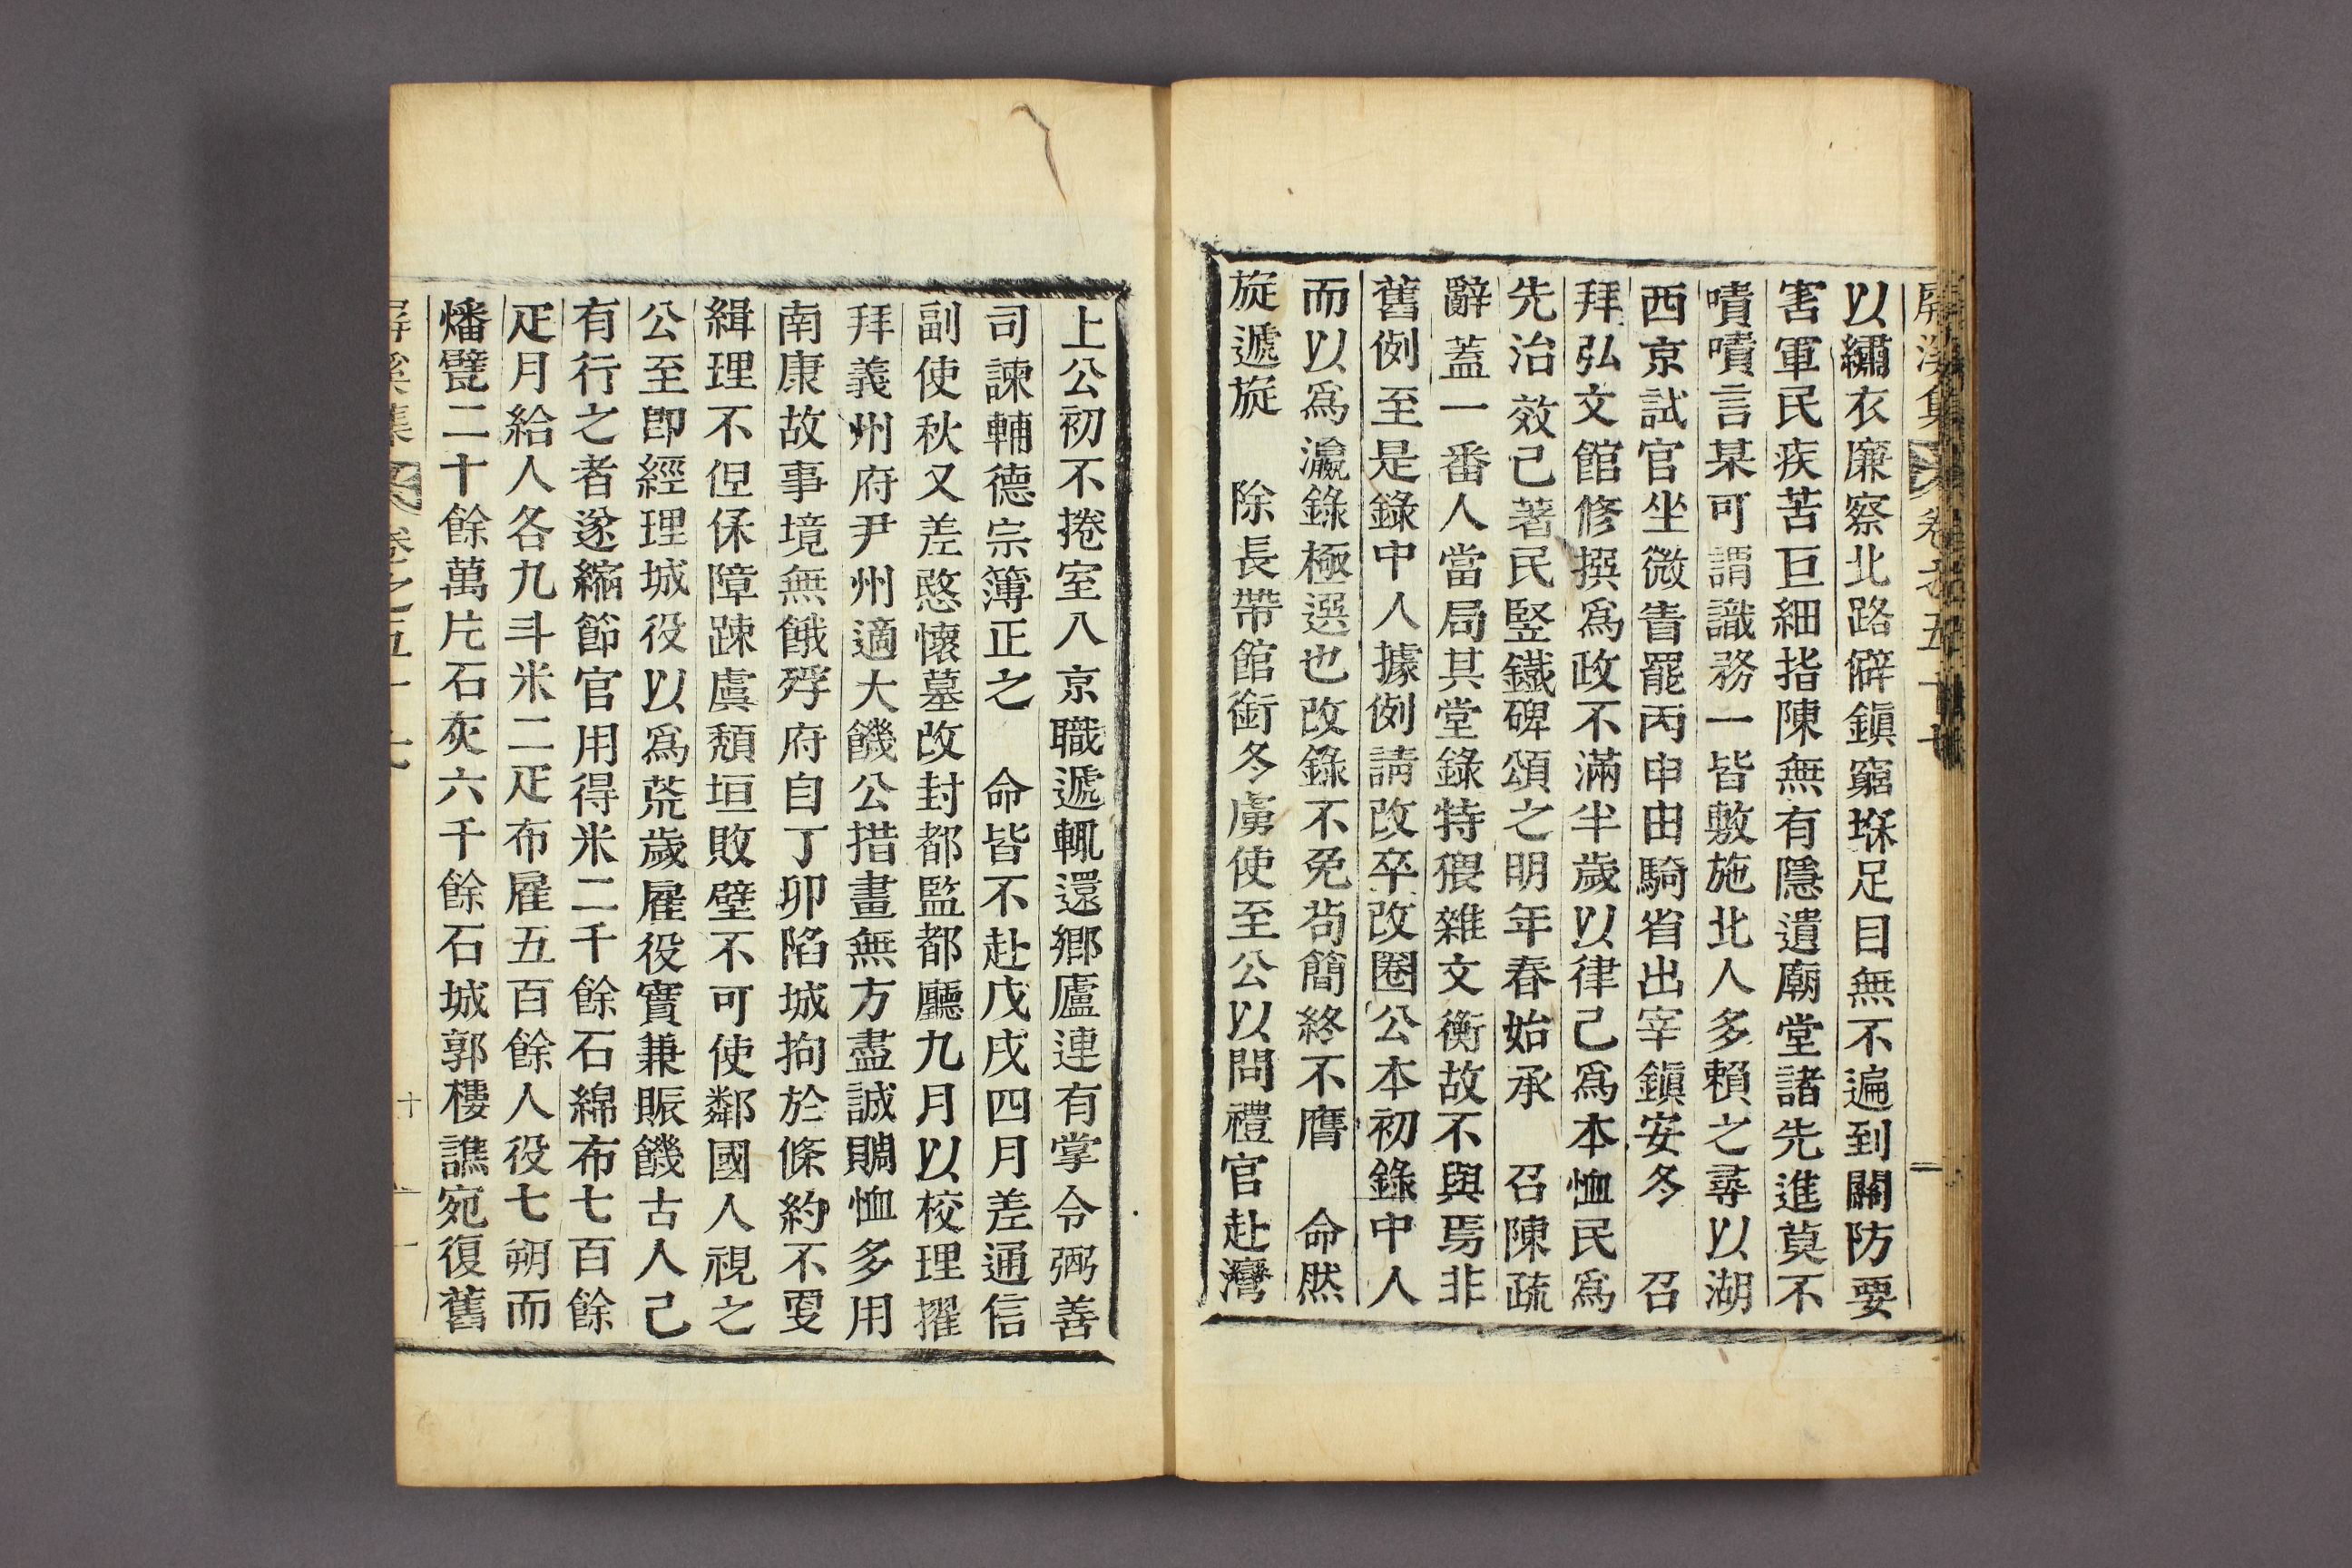 屛溪集 卷之五十七
以繡衣廉察北路僻鎭窮堡足目無不遍到關防要
害軍民疾苦巨細指陳無有隱遺廟堂諸先進莫不
嘖嘖言某可謂識務一皆敷施北人多賴之尋以湖
西京試官坐微眚罷丙申由騎省出宰鎭安冬 召
拜弘文館修撰爲政不滿半歲以律己爲本恤民爲
先治效已著民竪鐵碑頌之明年春始承 召陳疏
辭蓋一番人當局其堂錄特猥雜文衡故不與焉非
舊例至是錄中人據例請改卒改圈公本初錄中人
而以爲瀛錄極選也改錄不免苟簡終不膺 命然
旋遞旋 除長帶館銜冬虜使至公以問禮官赴灣
上公初不捲室八京職遞輒還鄕廬連有掌令弼善
司諫輔德宗簿正之 命皆不赴戊戌四月差通信
副使秋又差愍懷墓改封都監都廳九月以校理擢
拜義州府尹州適大饑公措畫無方盡誠賙恤多用
南康故事境無餓殍府自丁卯陷城拘於條約不㪅
緝理不但保障踈虞頹垣敗壁不可使鄰國人視之
公至卽經理城役以爲荒歲雇役實兼賑饑古人已
有行之者遂縮節官用得米二千餘石綿布七百餘
疋月給人各九斗米二疋布雇五百餘人役七朔而
燔甓二十餘萬片石灰六千餘石城郭樓譙宛復舊
屛溪集 卷之五十七 十一